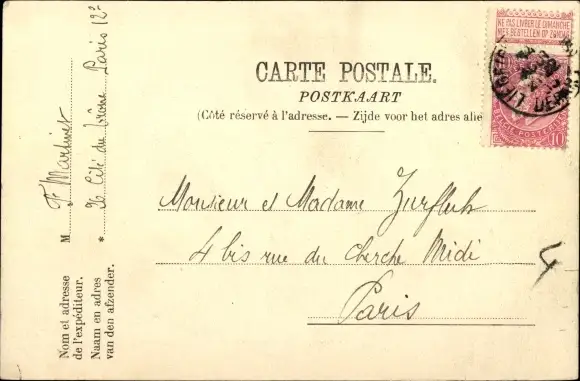 NE PAS LIVRER LE DIMANCHE
NIET BESTELLEN OP ZONDAG
CARTE POSTALE.
POSTKAART
(Côté réservé à l'adresse. — Zijde voor het adres alle
10
Monsieur et Madame Zurfluh
4 bis rue du Cherche Midi
Paris
4
Nom et adresse
de l'expéditeur.
Naam en adres
van den afzender.
M F Martinet
* 26 Cité du Trône Paris 12e